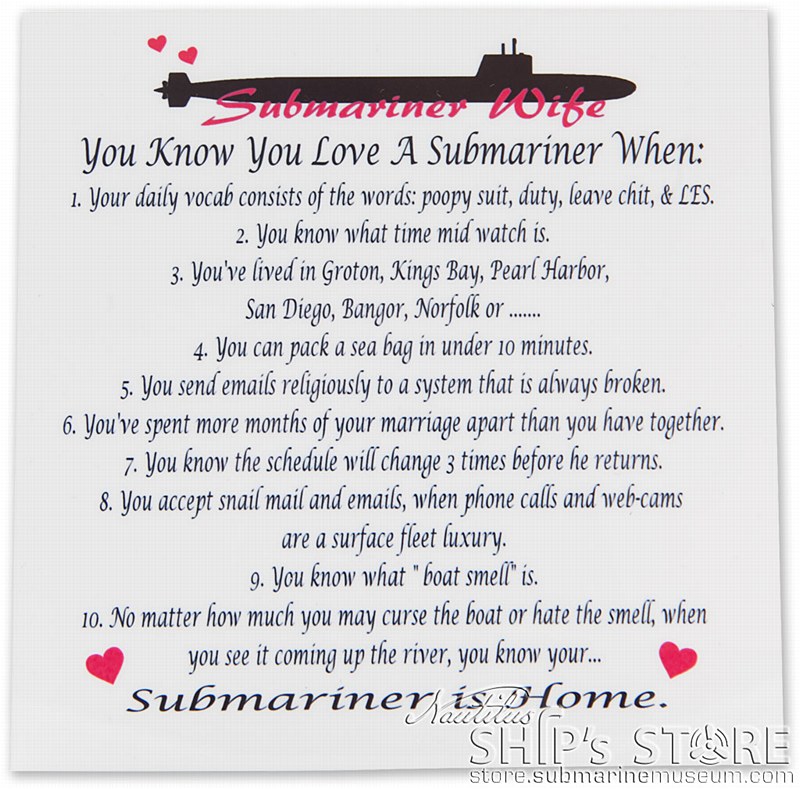 Submariner Wife
You Know You Love A Submariner When:
1. Your daily vocab consists of the words: poopy suit, duty, leave chit, & LES.
2. You know what time mid watch is.
3. You've lived in Groton, Kings Bay, Pearl Harbor,
San Diego, Bangor, Norfolk or .......
4. You can pack a sea bag in under 10 minutes.
5. You send emails religiously to a system that is always broken.
6. You've spent more months of your marriage apart than you have together.
7. You know the schedule will change 3 times before he returns.
8. You accept snail mail and emails, when phone calls and web-cams
are a surface fleet luxury.
9. You know what " boat smell" is.
10. No matter how much you may curse the boat or hate the smell, when
you see it coming up the river, you know your...
Submariner is Home.
Nautilus
SHIP's STORE
store.submarinemuseum.com